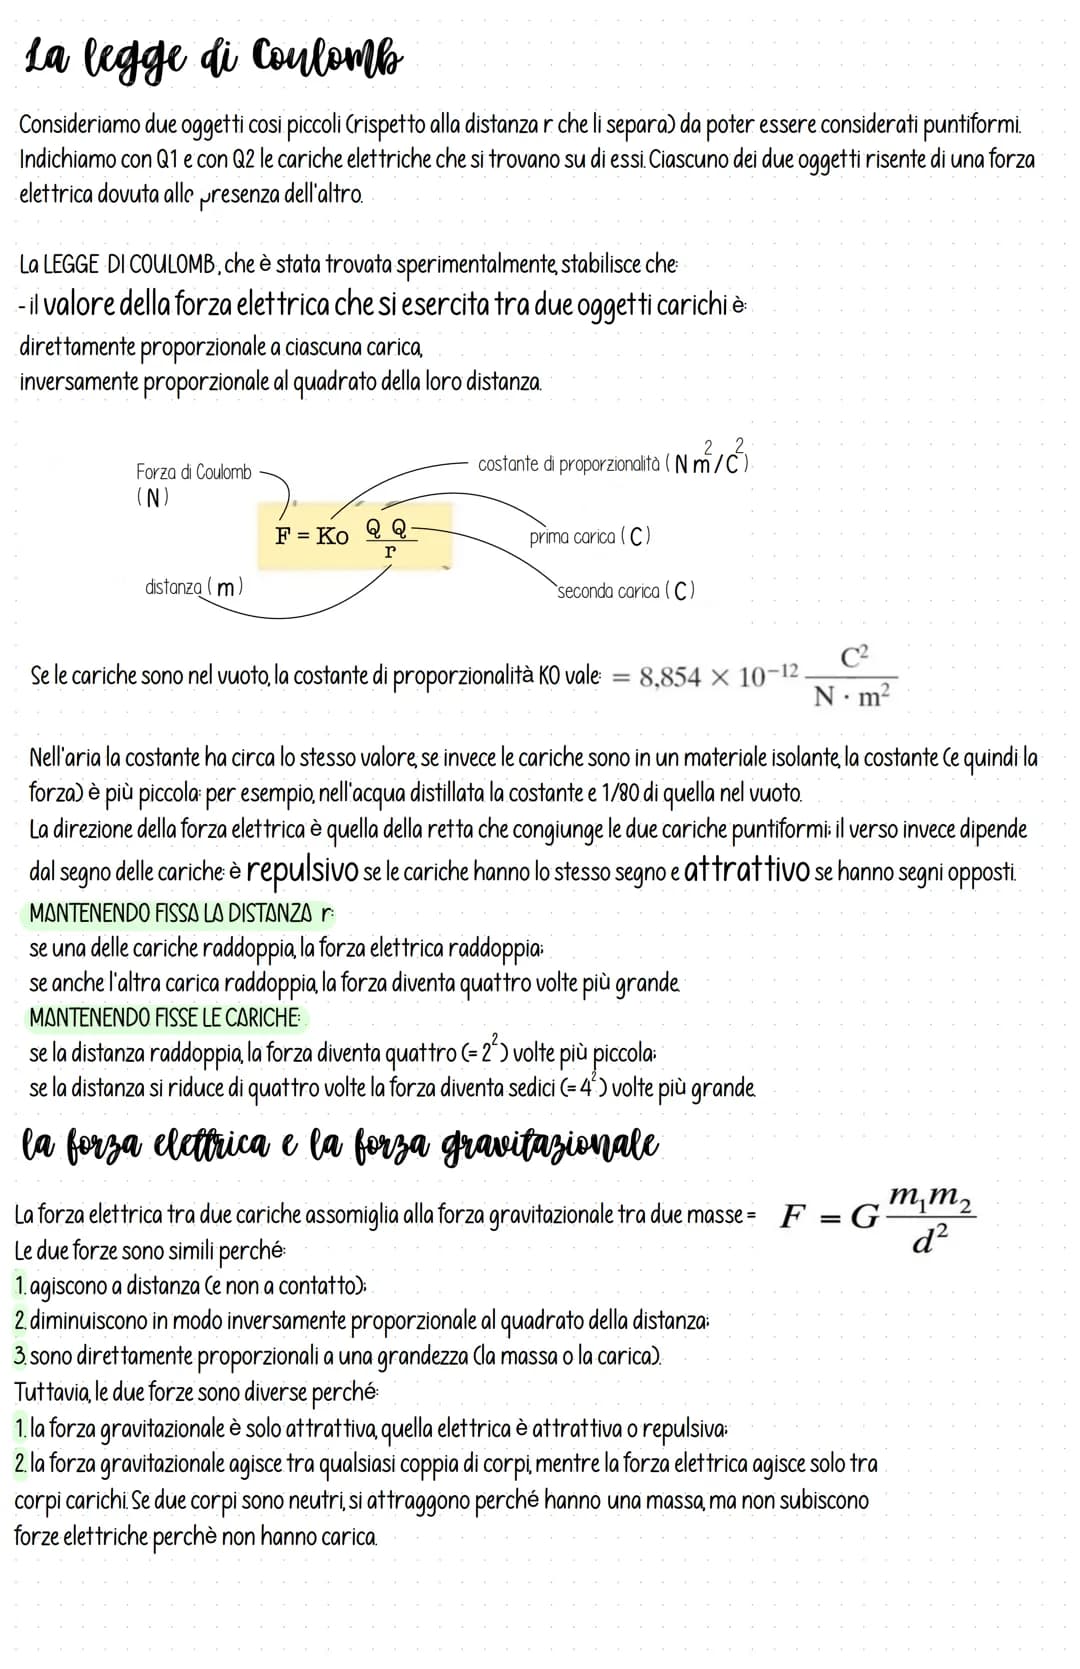 La legge di Coulomb
Consideriamo due oggetti cosi piccoli (rispetto alla distanza r che li separa) da poter essere considerati puntiformi.
Indichiamo con Q1 e con Q2 le cariche elettriche che si trovano su di essi. Ciascuno dei due oggetti risente di una forza
elettrica dovuta alla presenza dell'altro.
La LEGGE DI COULOMB, che è stata trovata sperimentalmente, stabilisce che:
- il valore della forza elettrica che si esercita tra due oggetti carichi è:
direttamente proporzionale a ciascuna carica,
inversamente proporzionale al quadrato della loro distanza.
costante di proporzionalità (N m²/C²)
Forza di Coulomb
(N)
F = Ko Q Q
r
prima carica (C)
distanza (m)
seconda carica (C)
Se le cariche sono nel vuoto, la costante di proporzionalità KO vale: = 8,854 × 10⁻¹² C² / N · m²
Nell'aria la costante ha circa lo stesso valore, se invece le cariche sono in un materiale isolante, la costante (e quindi la
forza) è più piccola: per esempio, nell'acqua distillata la costante e 1/80 di quella nel vuoto.
La direzione della forza elettrica è quella della retta che congiunge le due cariche puntiformi; il verso invece dipende
dal segno delle cariche: è repulsivo se le cariche hanno lo stesso segno e attrattivo se hanno segni opposti.
MANTENENDO FISSA LA DISTANZA r:
se una delle cariche raddoppia, la forza elettrica raddoppia;
se anche l'altra carica raddoppia, la forza diventa quattro volte più grande.
MANTENENDO FISSE LE CARICHE:
se la distanza raddoppia, la forza diventa quattro (= 2²) volte più piccola;
se la distanza si riduce di quattro volte la forza diventa sedici (= 4²) volte più grande.
la forza elettrica e la forza gravitazionale
La forza elettrica tra due cariche assomiglia alla forza gravitazionale tra due masse = F = G m₁m₂ / d²
Le due forze sono simili perché:
1. agiscono a distanza (e non a contatto);
2. diminuiscono in modo inversamente proporzionale al quadrato della distanza;
3. sono direttamente proporzionali a una grandezza (la massa o la carica).
Tuttavia, le due forze sono diverse perché:
1. la forza gravitazionale è solo attrattiva, quella elettrica è attrattiva o repulsiva;
2. la forza gravitazionale agisce tra qualsiasi coppia di corpi, mentre la forza elettrica agisce solo tra
corpi carichi. Se due corpi sono neutri, si attraggono perché hanno una massa, ma non subiscono
forze elettriche perchè non hanno carica.